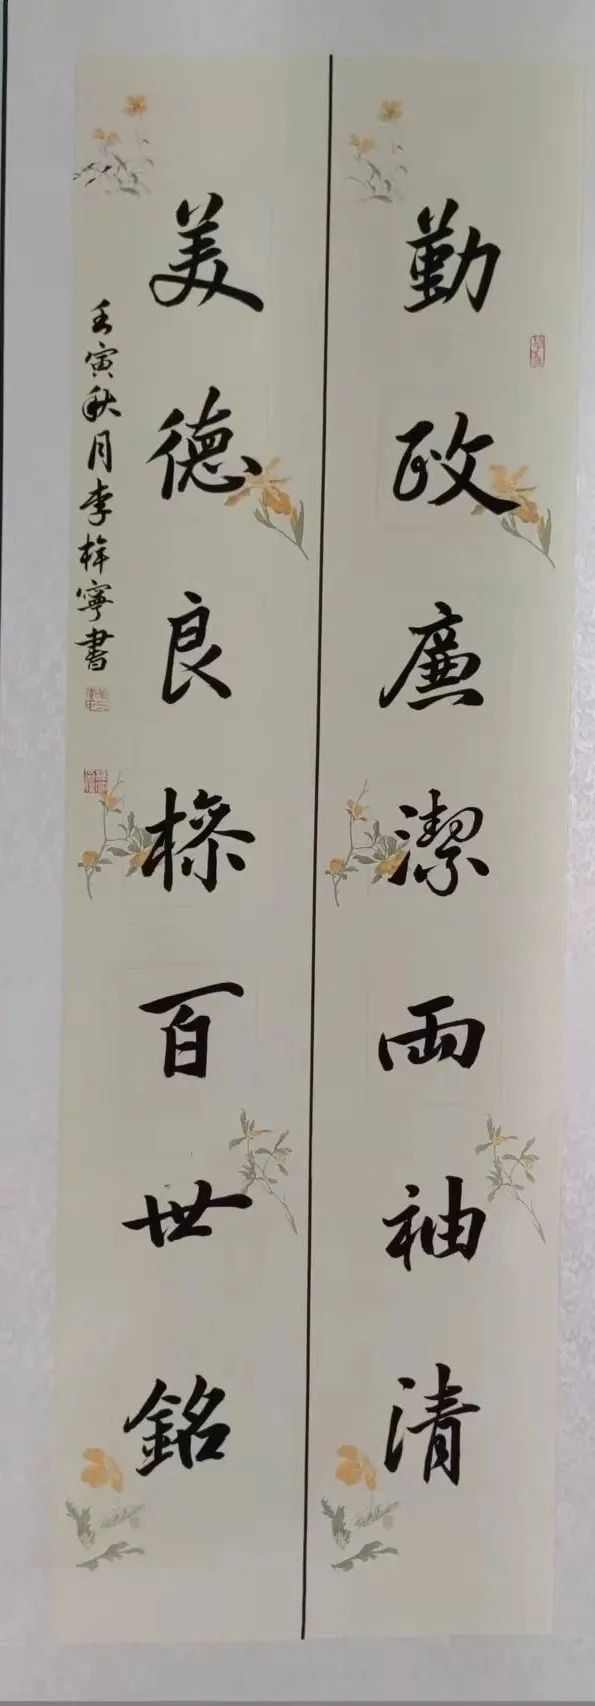 勤政廉潔兩袖清
美德良操百世銘
壬寅秋月李梓寧書